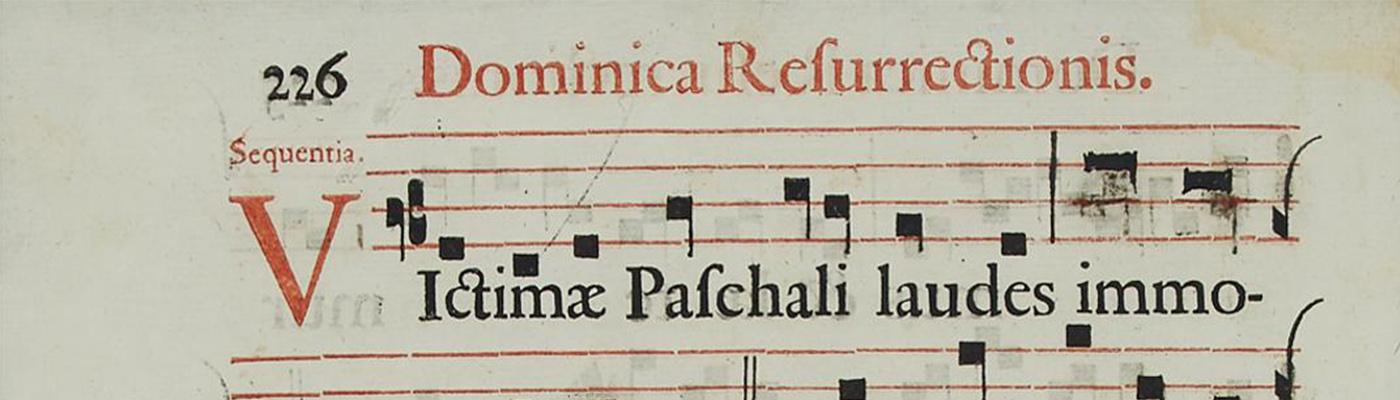 226 Dominica Reſurrectionis.
Sequentia.
VIctimæ Paſchali laudes immo-